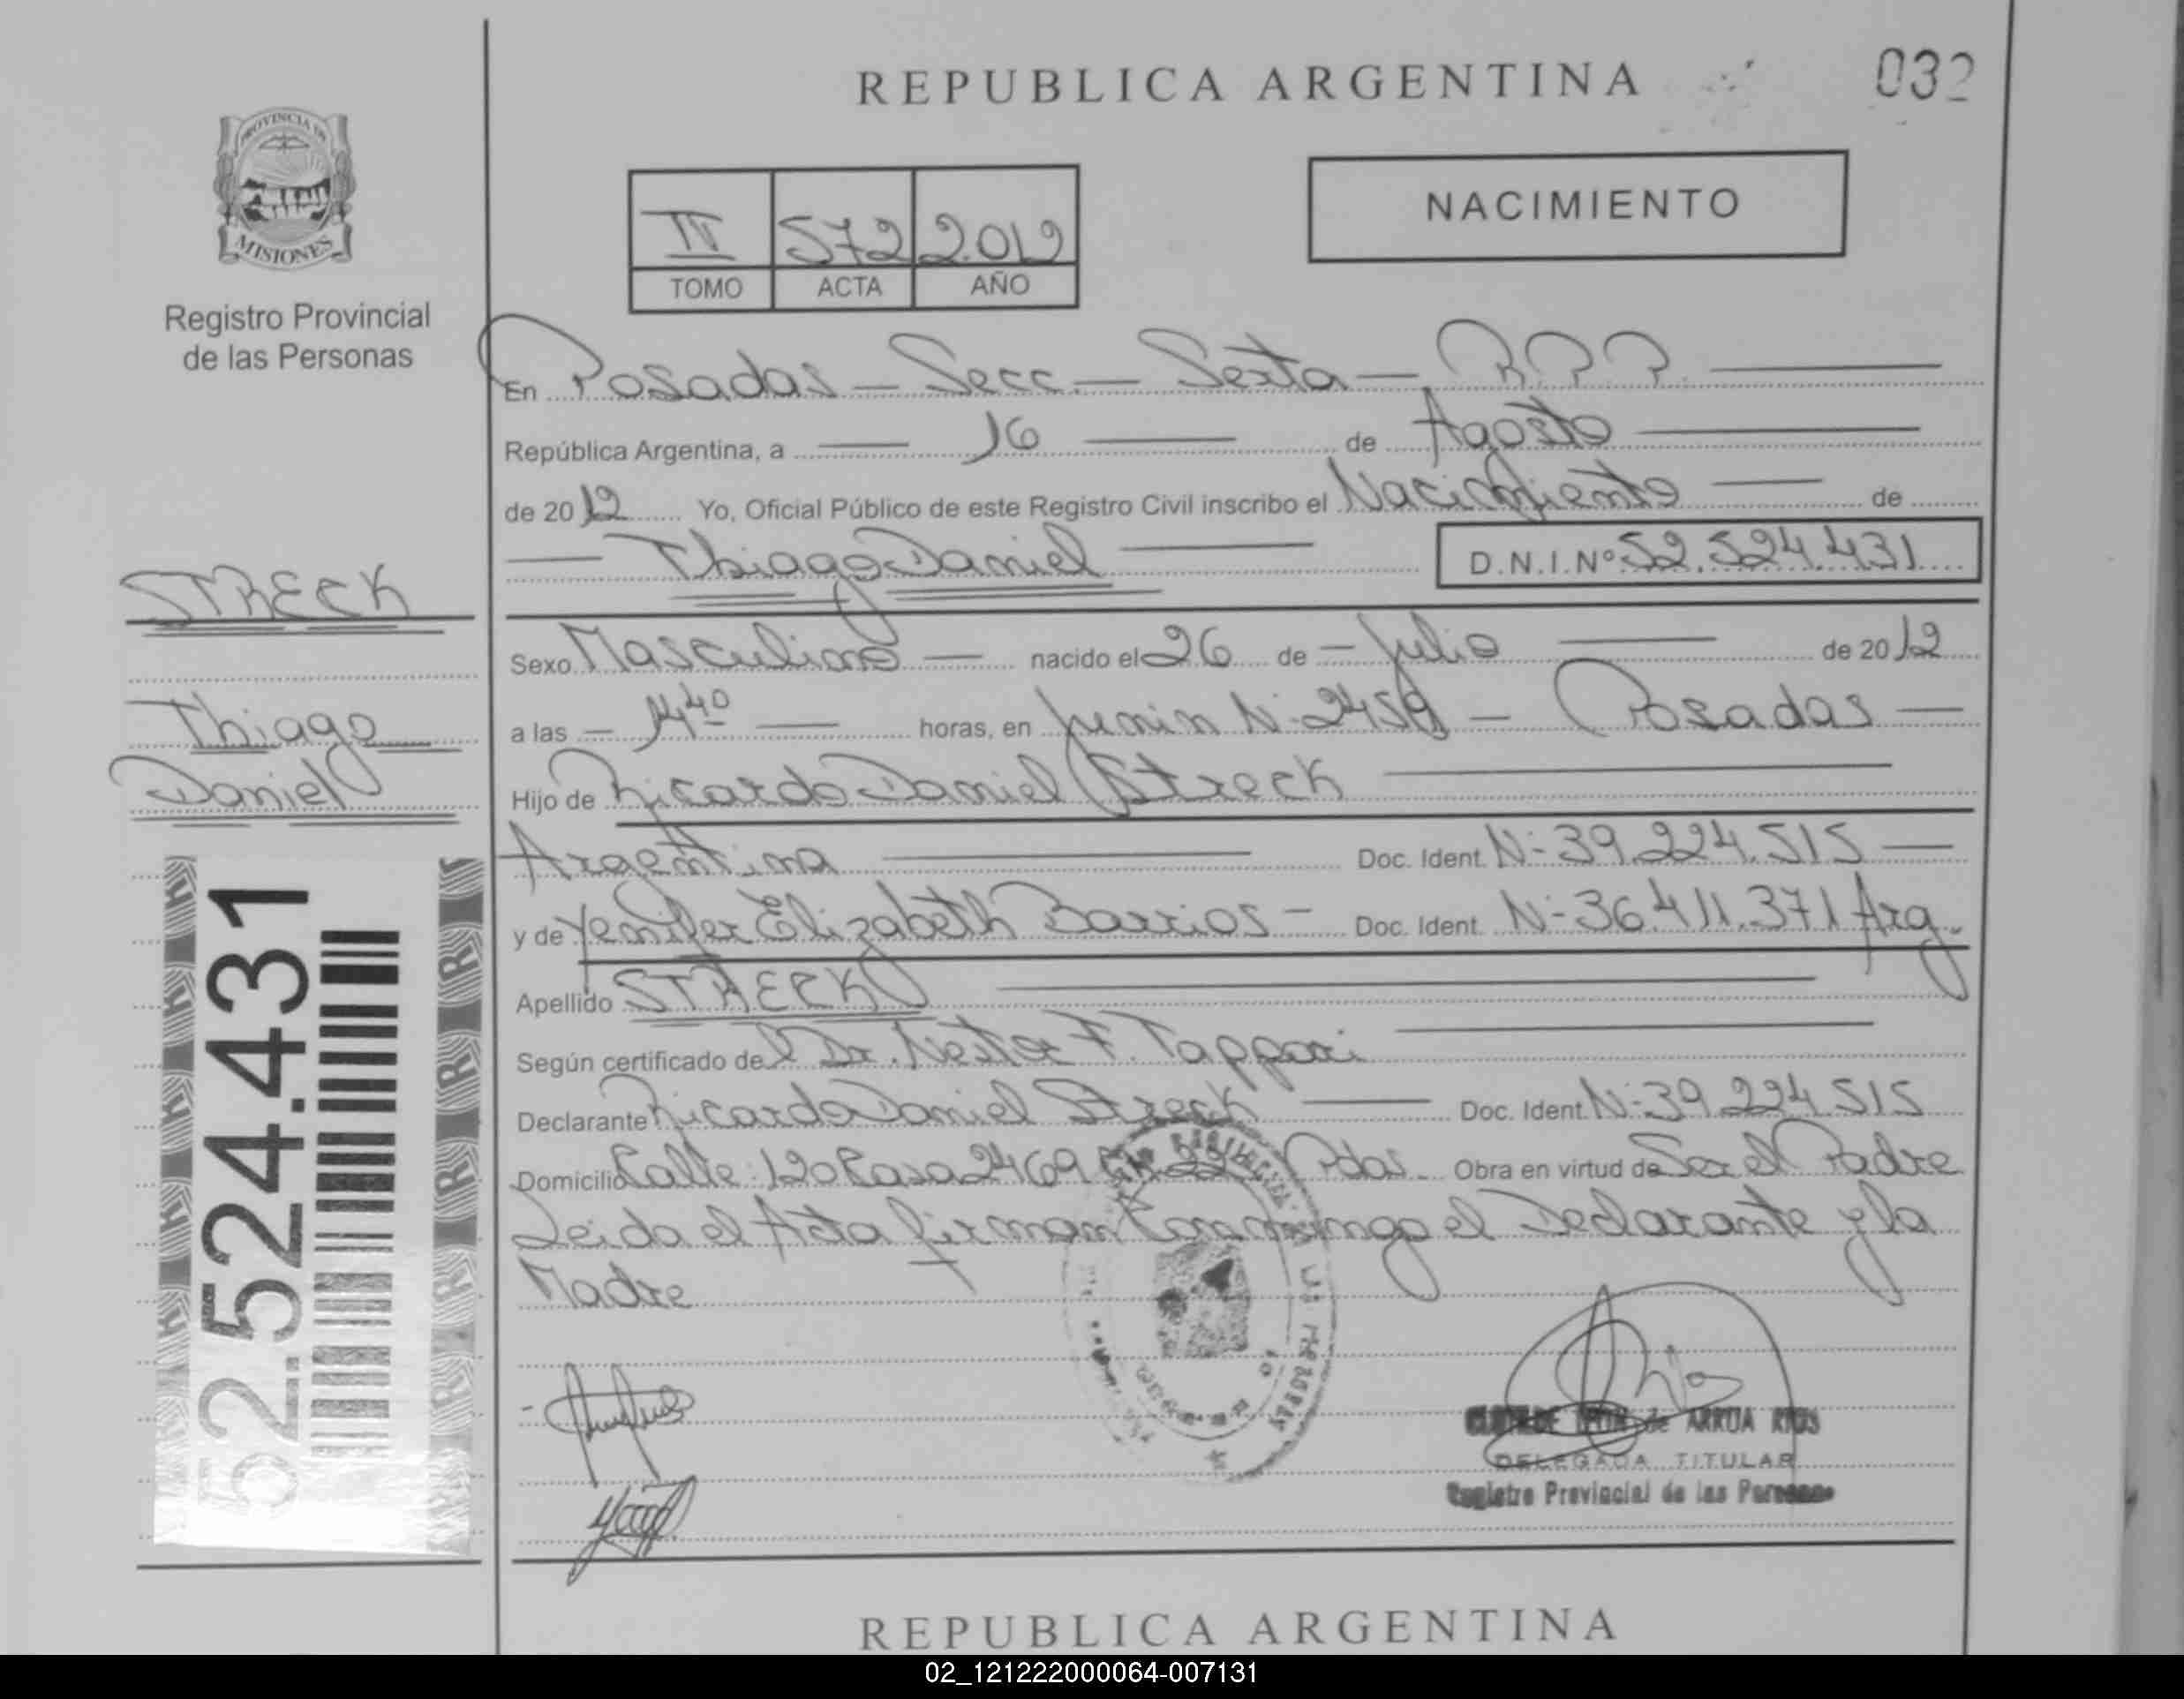 REPUBLICA ARGENTINA
032
PROVINCIA DE
MISIONES
Registro Provincial
de las Personas
NACIMIENTO
572 2.012
TOMO ACTA AÑO
En Posadas - Secc. - Sexta - R.P.P.
República Argentina, a 16 de Agosto
de 2012 Yo, Oficial Público de este Registro Civil inscribo el Nacimiento de
Thiago Daniel D.N.I.Nº 52.524.431
STRECK
Thiago
Daniel
52.524.431
Sexo Masculino nacido el 26 de Julio de 2012
a las 14:40 horas, en Junin N: 2459 - Posadas
Hijo de Ricardo Daniel Streck
Argentina Doc. Ident. N: 39.224.515
y de Yenifer Elizabeth Barrios - Doc. Ident. N: 36.411.371 Arg.
Apellido STRECK
Según certificado del Dr. Nestor F.
Declarante Ricardo Daniel Streck Doc. Ident. N: 39.224.515
Domicilio Calle: 120 Casa 2469 Pdas. Obra en virtud de Ser el Padre
Leida el Acta firman Conmigo el Declarante y la
Madre
de ARRUA RIOS
DELEGADA TITULAR
Registro Provincial de las Personas
REPUBLICA ARGENTINA
02_121222000064-007131